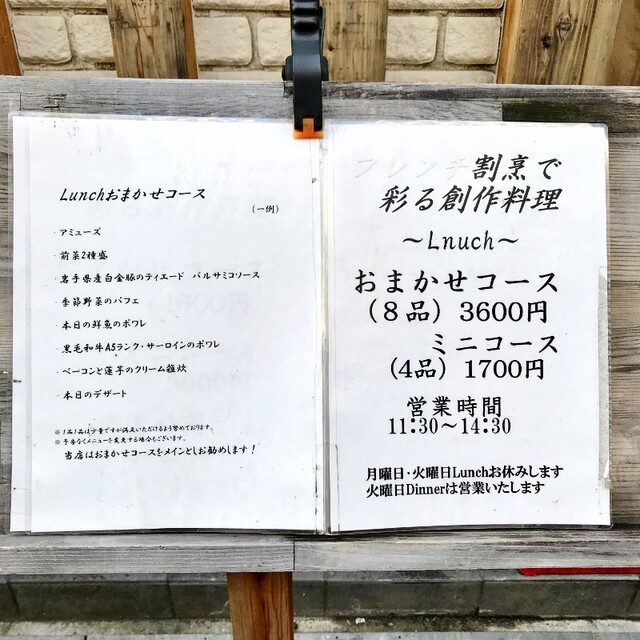 Lunchおまかせコース
(一例)
・アミューズ
・前菜2種盛
・岩手県産白金豚のティエード バルサミコソース
・季節野菜のパフェ
・本日の鮮魚のポワレ
・黒毛和牛A5ランク・サーロインのポワレ
・ベーコンと蓮芋のクリーム雑炊
・本日のデザート
※1品1品は少量ですが満足いただけるよう努めております。
※予告なくメニューを変更する場合もございます。
当店はおまかせコースをメインとしお勧めします!
フレンチ割烹で
彩る創作料理
～Lnuch～
おまかせコース
(8品) 3600円
ミニコース
(4品) 1700円
営業時間
11:30～14:30
月曜日・火曜日Lunchお休みします
火曜日Dinnerは営業いたします